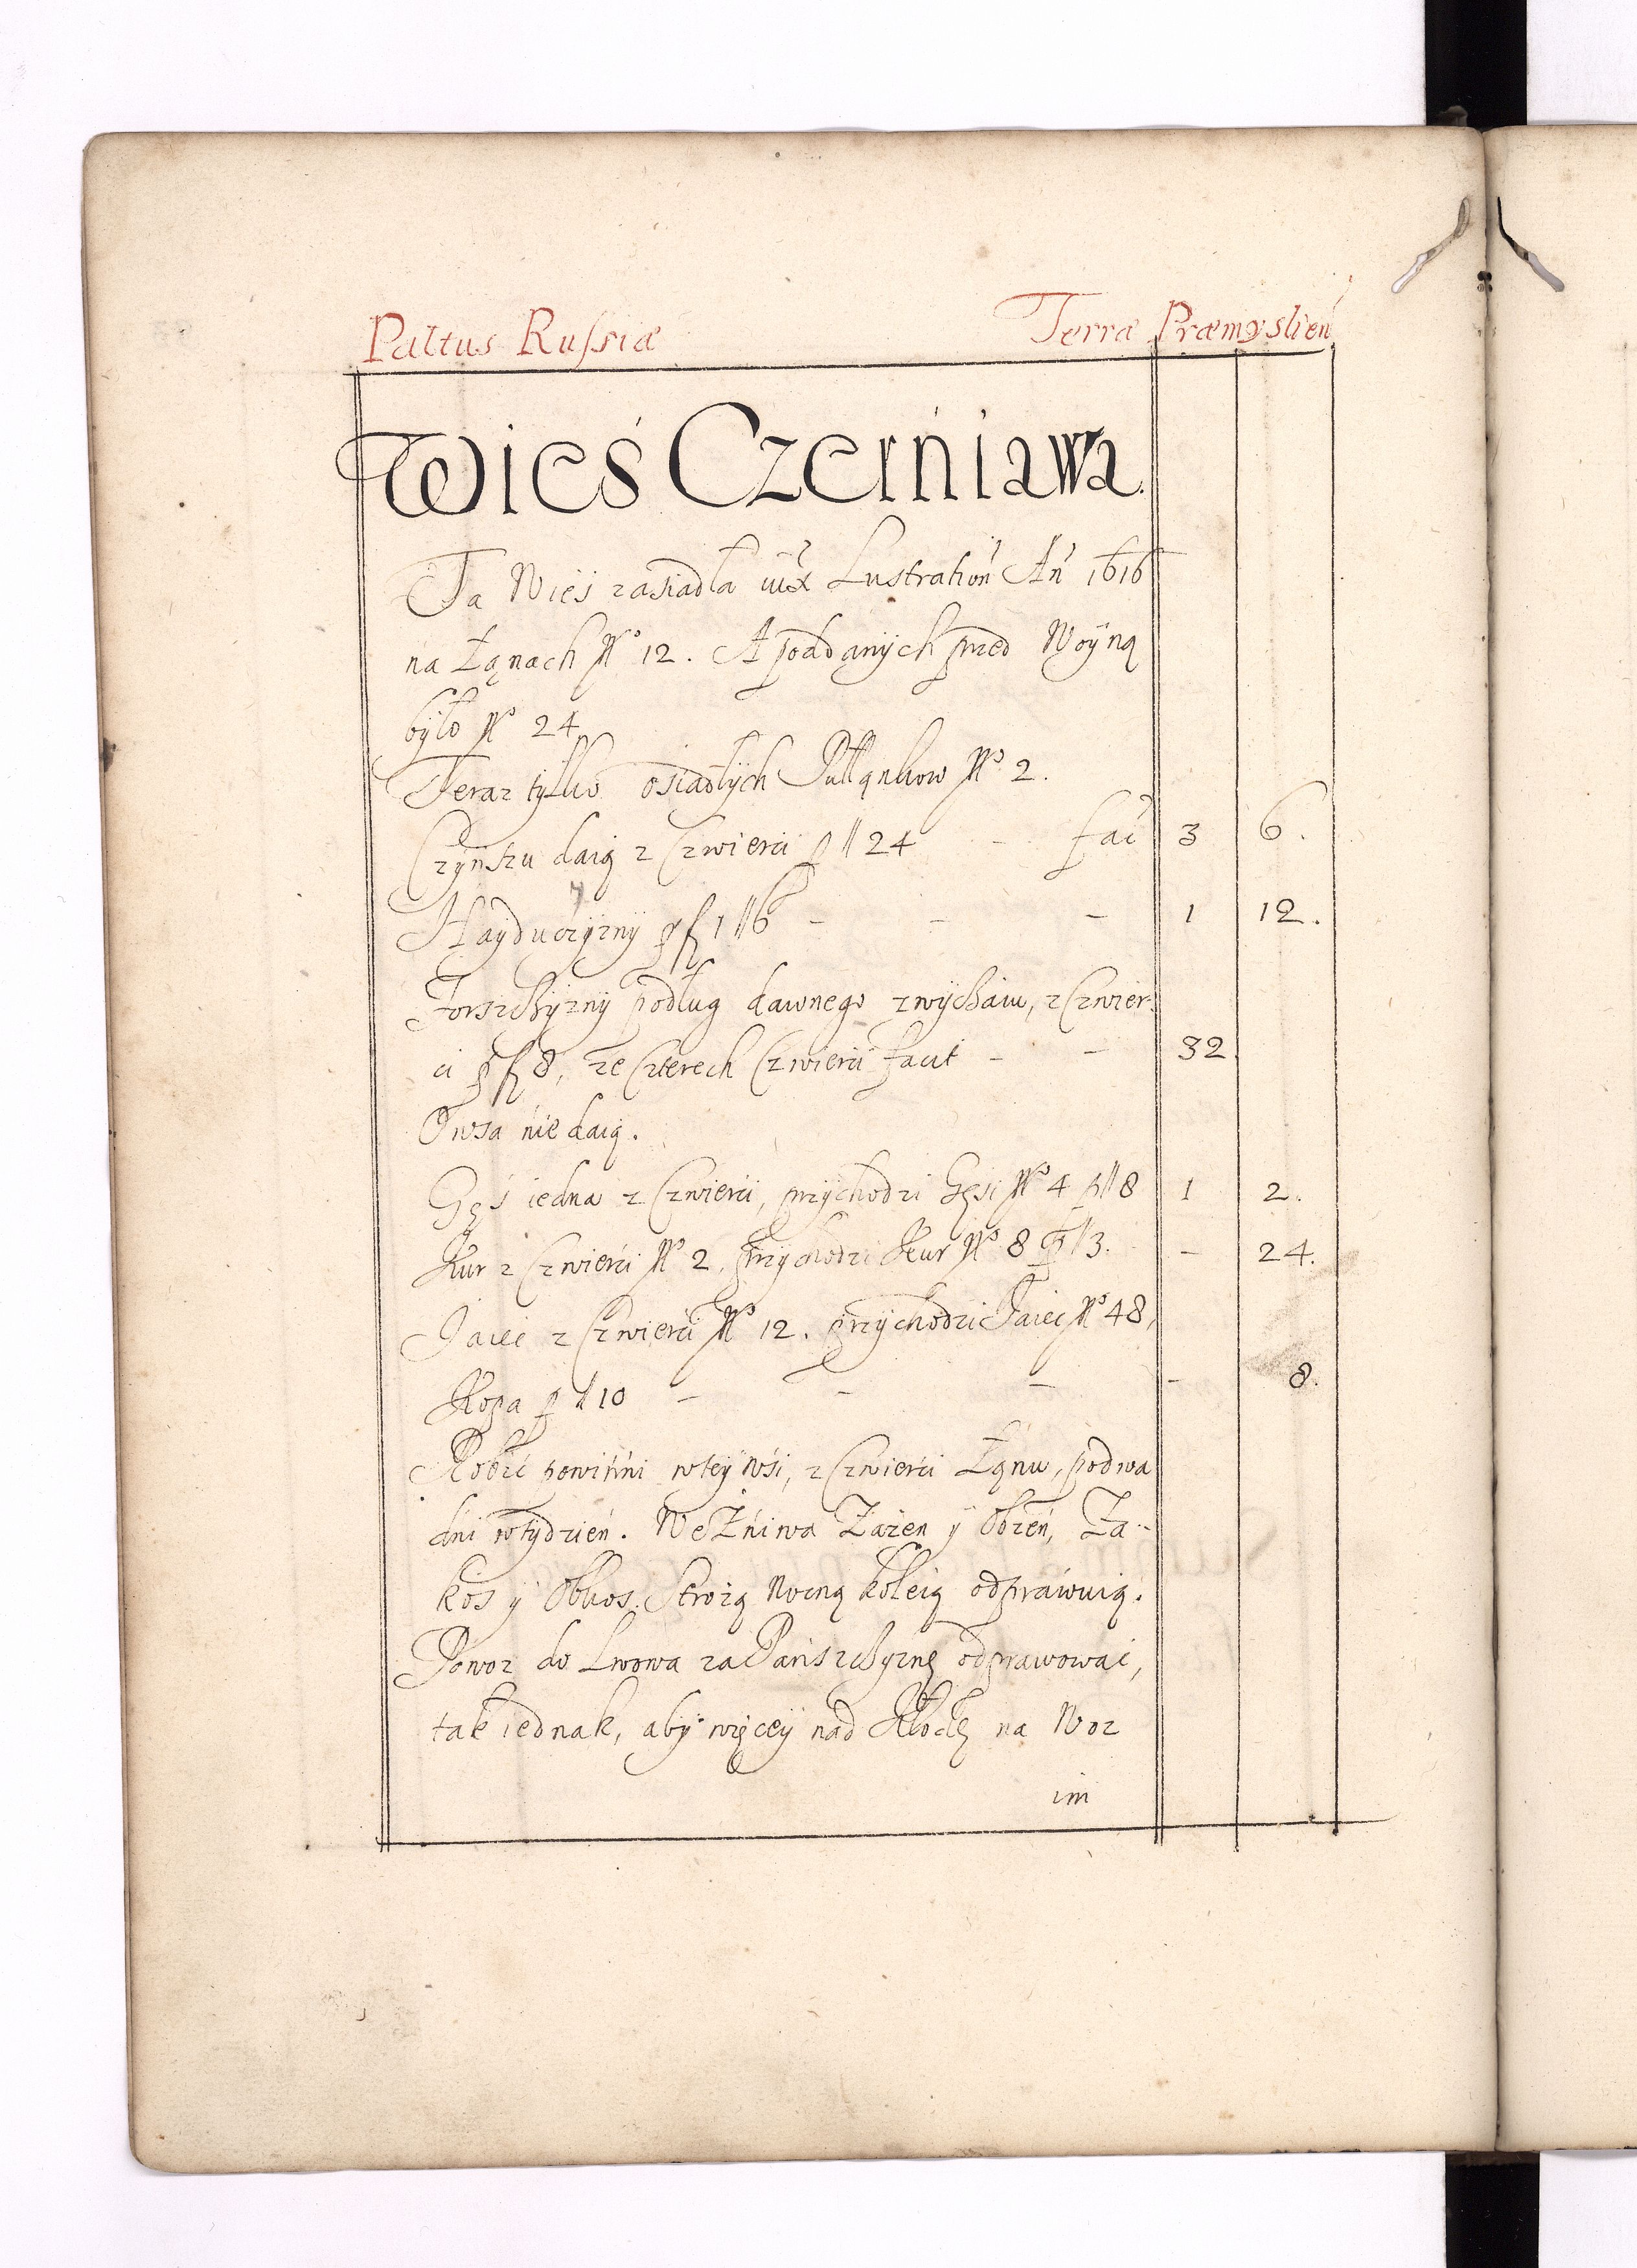 Paltus Russiæ Terræ Præmyslien
Wieś Czerniawa.
Ta Wieś zasiadła iuxta Lustration An 1616
na Łąnach No 12. A poddanych przed Woyną
było No 24
Teraz tylko osiadłych Pułłąnkow No 2.
Czynszu daią z Czwierći p ll 24 - fać 3 6.
Haydućzyzny p fl 1 ll 6 - - - 1 12.
Torszczyzny podług dawnego zwyćzaiu, z Czwier:
ći p fl 8, ze Czterech Czwierći facit - - 32.
Owsa nie daią.
Gęś iedna z Czwierći, przychodzi Gęsi No 4 p ll 8 1 2.
Kur z Czwierći No 2. przychodzi Kur No 8 p ll 3. - 24.
Jaiec z Czwierći No 12. przychodzi Jaiec No 48,
Kopa p ll 10 - - - - 8.
Robić powinni w tey Wśi, z Czwierći Łąnu, po dwa
dni w tydzień. We Żniwa Zażen y Obzen, Za-
kos y Obkos. Strożą Nocną koleią odprawuią.
Powoz do Lwowa za Pańszczyznę odprawować,
tak iednak, aby więcey nad Kłodę na Woz
im